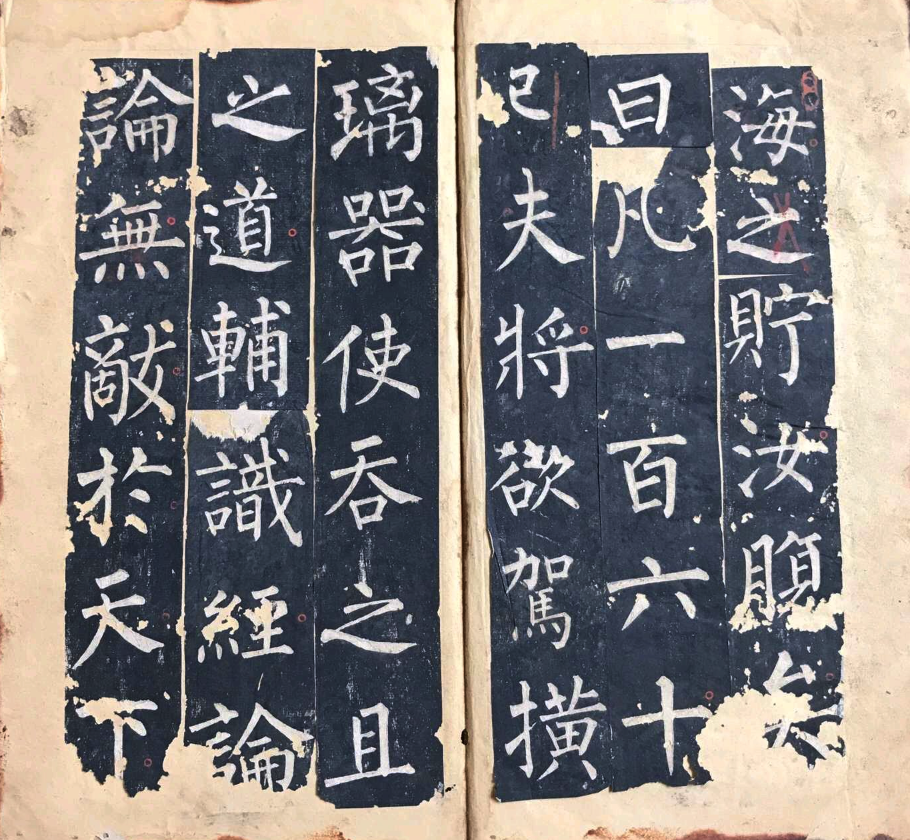 海之貯汝腹矣
曰凡一百六十
已夫將欲駕撗
璃器使吞之且
之道輔識經論
論無敵於天下